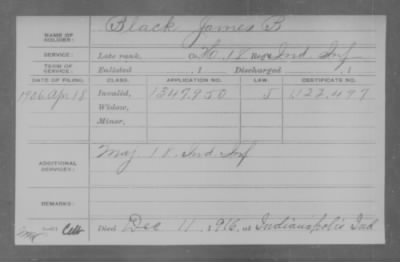 NAME OF SOLDIER: Black James B
SERVICE: Late rank, Co. H. 18 Reg't Ind. Inf
TERM OF SERVICE: Enlisted , 1 Discharged , 1
DATE OF FILING. CLASS. APPLICATION NO. LAW. CERTIFICATE NO.
1906 Apr 18 Invalid, 1347,950 J 1122,497
Widow,
Minor,
ADDITIONAL SERVICES: Maj 18. Ind. Inf
REMARKS:
Died Dec 11, 1916, at Indianapolis Ind